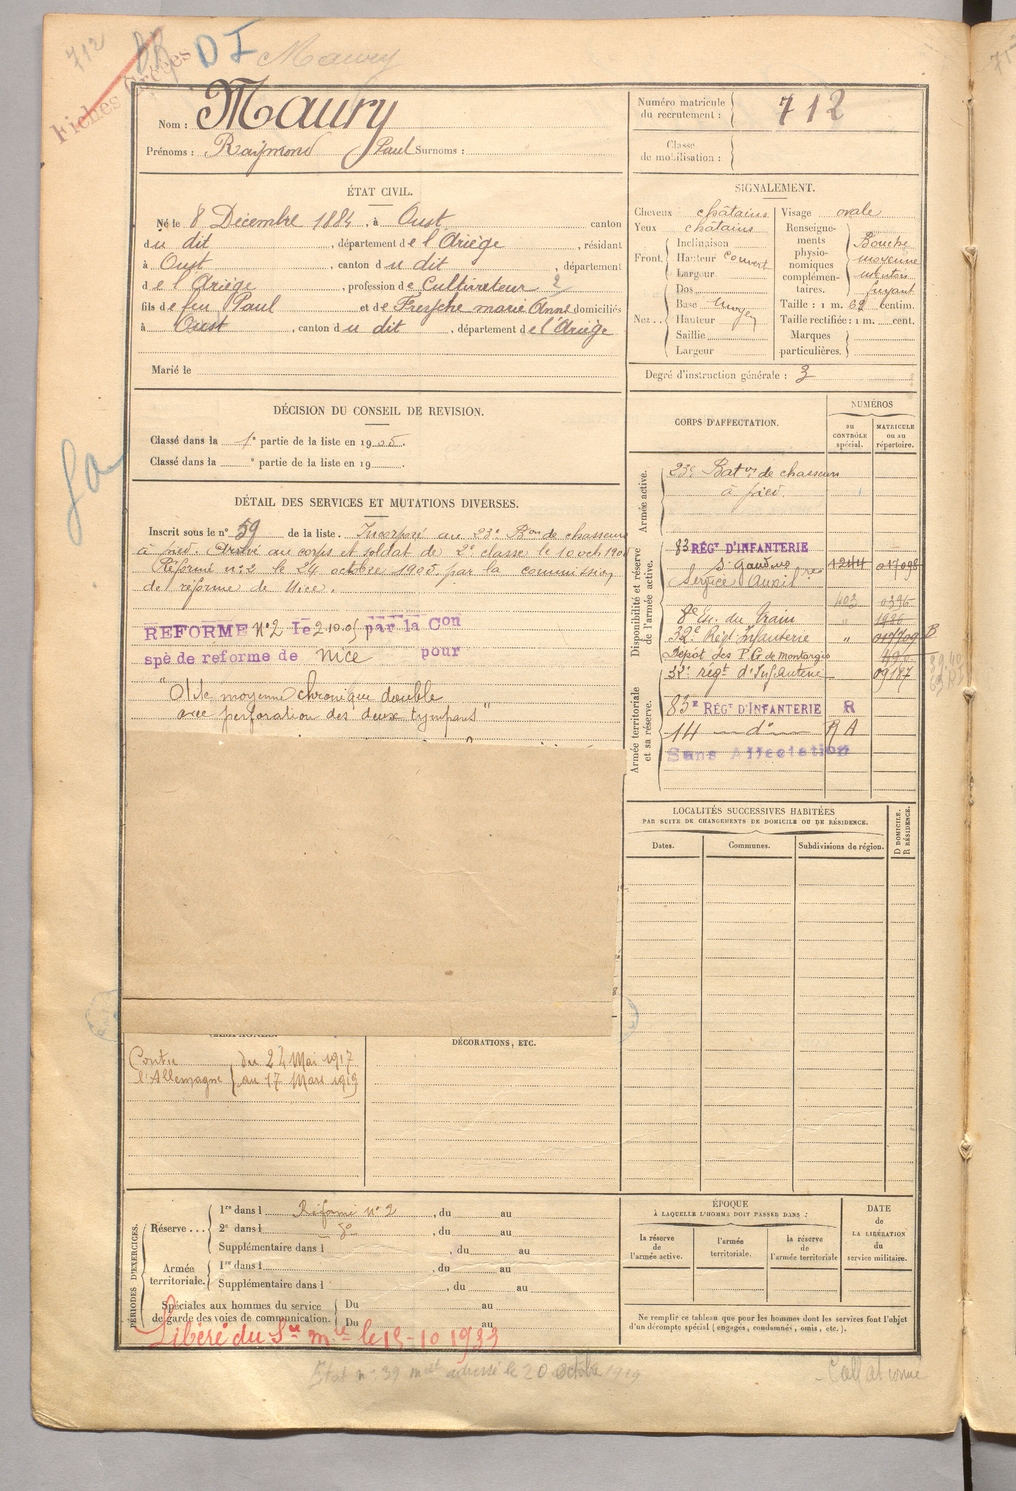 712
BR
DI
Maury
Fiches
Nom : Maury
Prénoms : Raymond Paul Surnoms :
Numéro matricule
du recrutement : 712
Classe
de mobilisation :
ÉTAT CIVIL.
Né le 8 Décembre 1884, à Oust canton
du dit, département de l'Ariège, résidant
à Oust, canton du dit, département
de l'Ariège, profession de Cultivateur 2
fils de feu Paul et de Freyche marie Anne domiciliés
à Oust, canton du dit, département de l'Ariège
Marié le
SIGNALEMENT.
Cheveux châtains
Yeux châtains
Front. Inclinaison
Hauteur couvert
Largeur
Nez Dos
Base moyen
Hauteur
Saillie
Largeur
Visage ovale
Renseignements physionomiques complémentaires. Bouche
moyenne
menton
fuyant
Taille : 1 m. 62 centim.
Taille rectifiée : 1 m. cent.
Marques
particulières.
Degré d'instruction générale : 3
DÉCISION DU CONSEIL DE REVISION.
Classé dans la 1e partie de la liste en 1905.
Classé dans la e partie de la liste en 19
DÉTAIL DES SERVICES ET MUTATIONS DIVERSES.
Inscrit sous le n° 59 de la liste. Incorporé au 23e Bon de chasseurs
à pied. Arrivé au corps et soldat de 2e classe le 10 octb 190
Réformé n° 2 le 24 octobre 1905 par la commission
de réforme de Nice.
REFORME N°2 le 2 10.05 par la Con
spè de reforme de Nice pour
"Otite moyenne chronique double
avec perforation des deux tympans"
CORPS D'AFFECTATION.
NUMÉROS
au
CONTRÔLE
spécial.
MATRICULE
ou au
répertoire.
Armée active.
23e Baton de chasseurs
à pied.
Disponibilité et réserve
de l'armée active.
83 RÉGt D'INFANTERIE
St gaudens 1244 017098
Service Auxilres
403 0396
8e Es. du Train " 1486
32e Régt Infanterie "
Dépot des P.G de montargis
32e regt d'Infanterie 09187
Armée territoriale
et sa réserve.
83e RÉGt D'INFANTERIE R
14 — do — RA
Sans Affectation
LOCALITÉS SUCCESSIVES HABITÉES
PAR SUITE DE CHANGEMENTS DE DOMICILE OU DE RÉSIDENCE.
Dates.
Communes.
Subdivisions de région.
D DOMICILE.
R RÉSIDENCE.
CAMPAGNES.
Contre
l'Allemagne
du 24 Mai 1917
au 17 Mars 1919
DÉCORATIONS, ETC.
PÉRIODES D'EXERCICES.
Réserve ... 1re dans l Réformé n° 2, du au
2e dans l — do, du au
Supplémentaire dans l, du au
Armée
territoriale. 1re dans l, du au
Supplémentaire dans l, du au
Spéciales aux hommes du service
de garde des voies de communication. Du au
Du au
Libéré du Sce mre le 15-10 1933
ÉPOQUE
À LAQUELLE L'HOMME DOIT PASSER DANS :
la réserve
de
l'armée active.
l'armée
territoriale.
la réserve
de
l'armée territoriale
DATE
de
LA LIBÉRATION
du
service militaire.
Ne remplir ce tableau que pour les hommes dont les services font l'objet
d'un décompte spécial (engagés, condamnés, omis, etc.).
Etat n° 39 mel adressé le 20 octobre 1919
Collationné